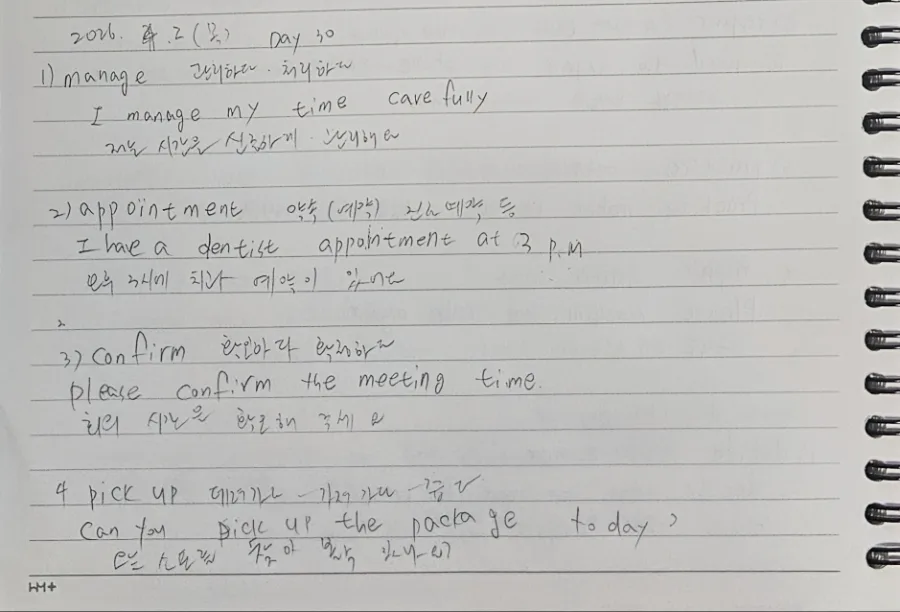 2026. 4. 2 (목) Day 30
1) manage 관리하다. 처리하다
I manage my time carefully
저는 시간을 신중하게 관리해요
2) appointment 약속 (예약) 진료예약 등
I have a dentist appointment at 3 p.m
오후 3시에 치과 예약이 있어요
3) confirm 확인하다 확정하다
please confirm the meeting time.
회의 시간을 확인해 주세요
4 pick up 데려가다 - 가져가다 - 줍다
Can you pick up the package today?
오늘 소포를
HM+